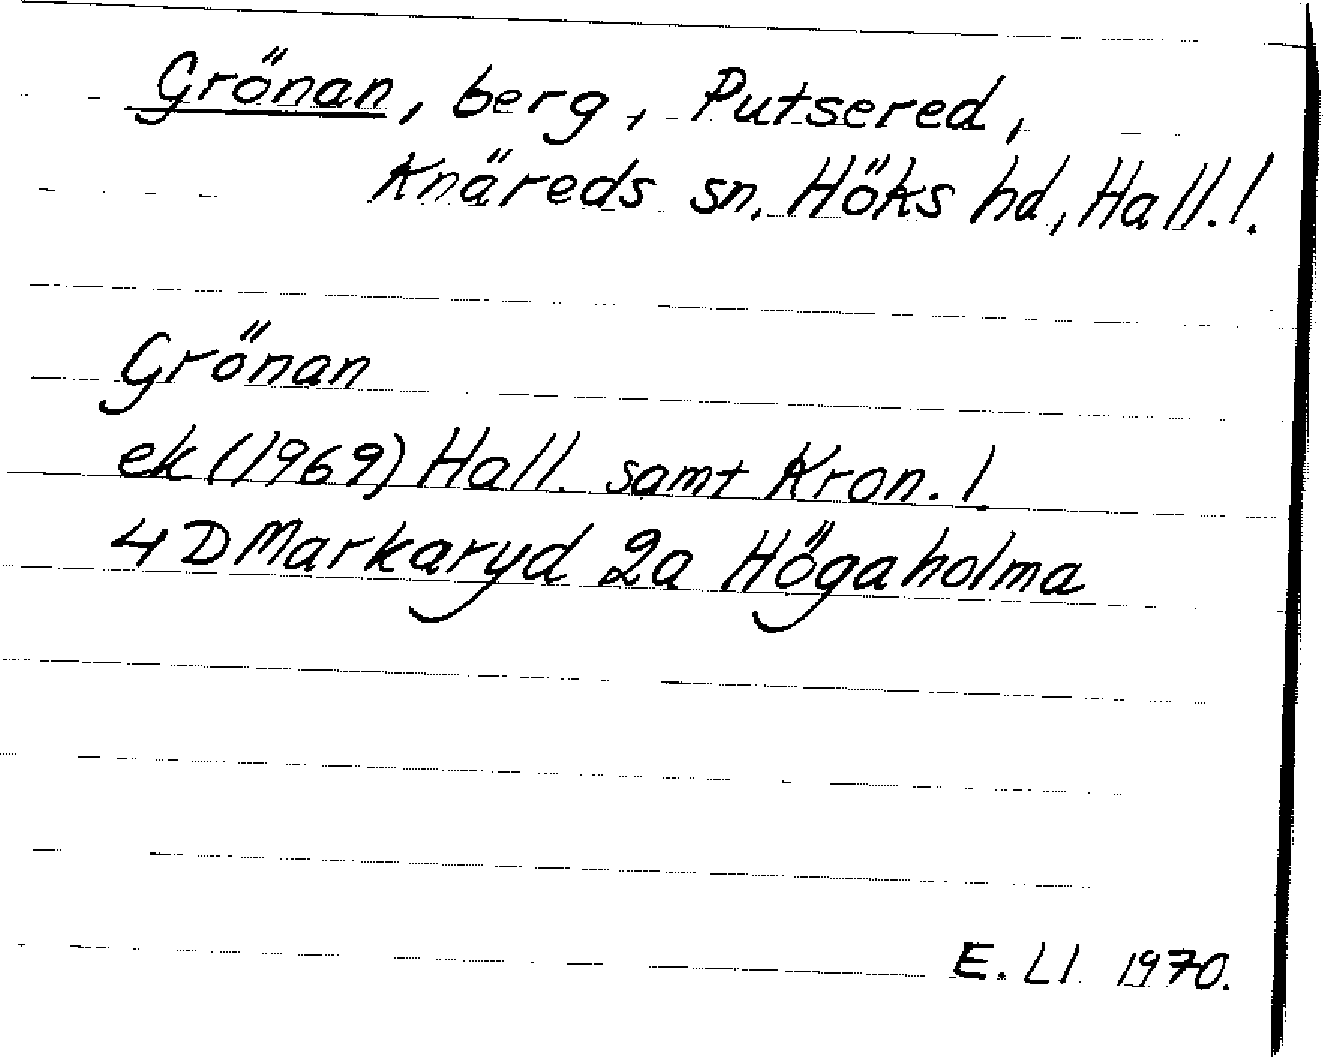 Grönan, berg, Putsered,
Knäreds sn, Höks hd, Hall. l.
Grönan
ek (1969) Hall. samt Kron. l.
4D Markaryd 2a Högaholma
E. Ll. 1970.